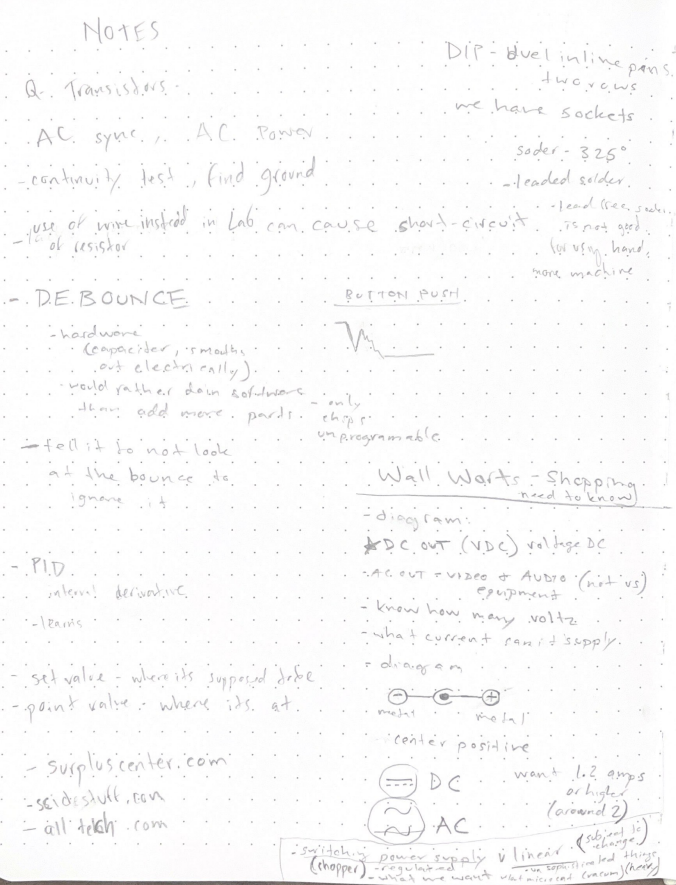 NOTES
Q- Transistors
AC sync, AC Power
- continuity test, find ground
- use of wire instead in Lab can cause short-circuit
of resistor
DIP - duel inline pins
two rows
we have sockets
soder - 325°
- leaded solder
- lead free
is not good
for using hand,
more machine
- DEBOUNCE
- hardware
(capaciter, smooths
out electrically)
would rather do in software
than add more parts
- only
chips
unprogramable
- tell it to not look
at the bounce to
ignore it
BUTTON PUSH
- PID
derivative
- learns
- set value - where its supposed to be
- point value - where its at
- surpluscenter.com
- all .com
Wall Warts - Shopping
need to know
- diagram:
DC OUT (VDC) voltage DC
- AC OUT = VIDEO + AUDIO (not us)
equipment
- know how many voltz
- what current can it supply
= diagram
- +
metal metal
center positive
DC
AC
want 1.2 amps
or higher
(around 2)
- switching power supply v linear (subject to
change)
(chopper) - regulated
- what we want